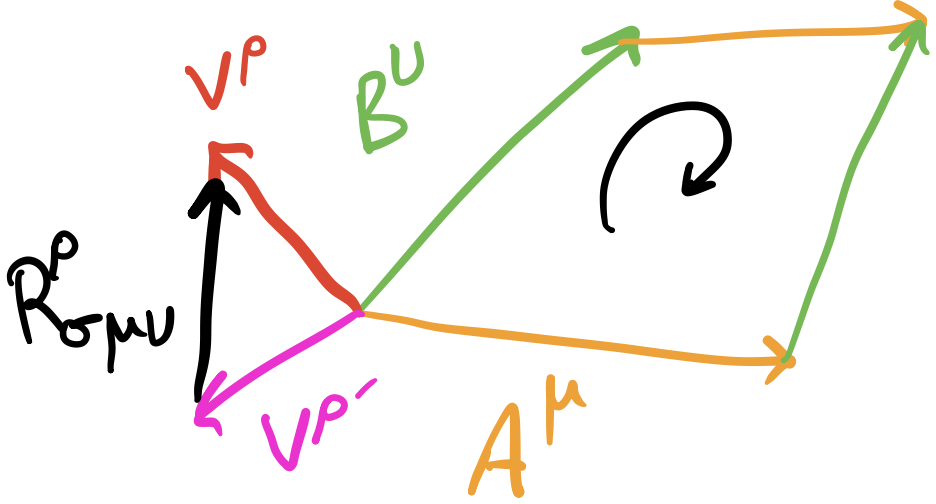 V^ρ
B^ν
R^ρ_σμν
V^ρ′
A^μ